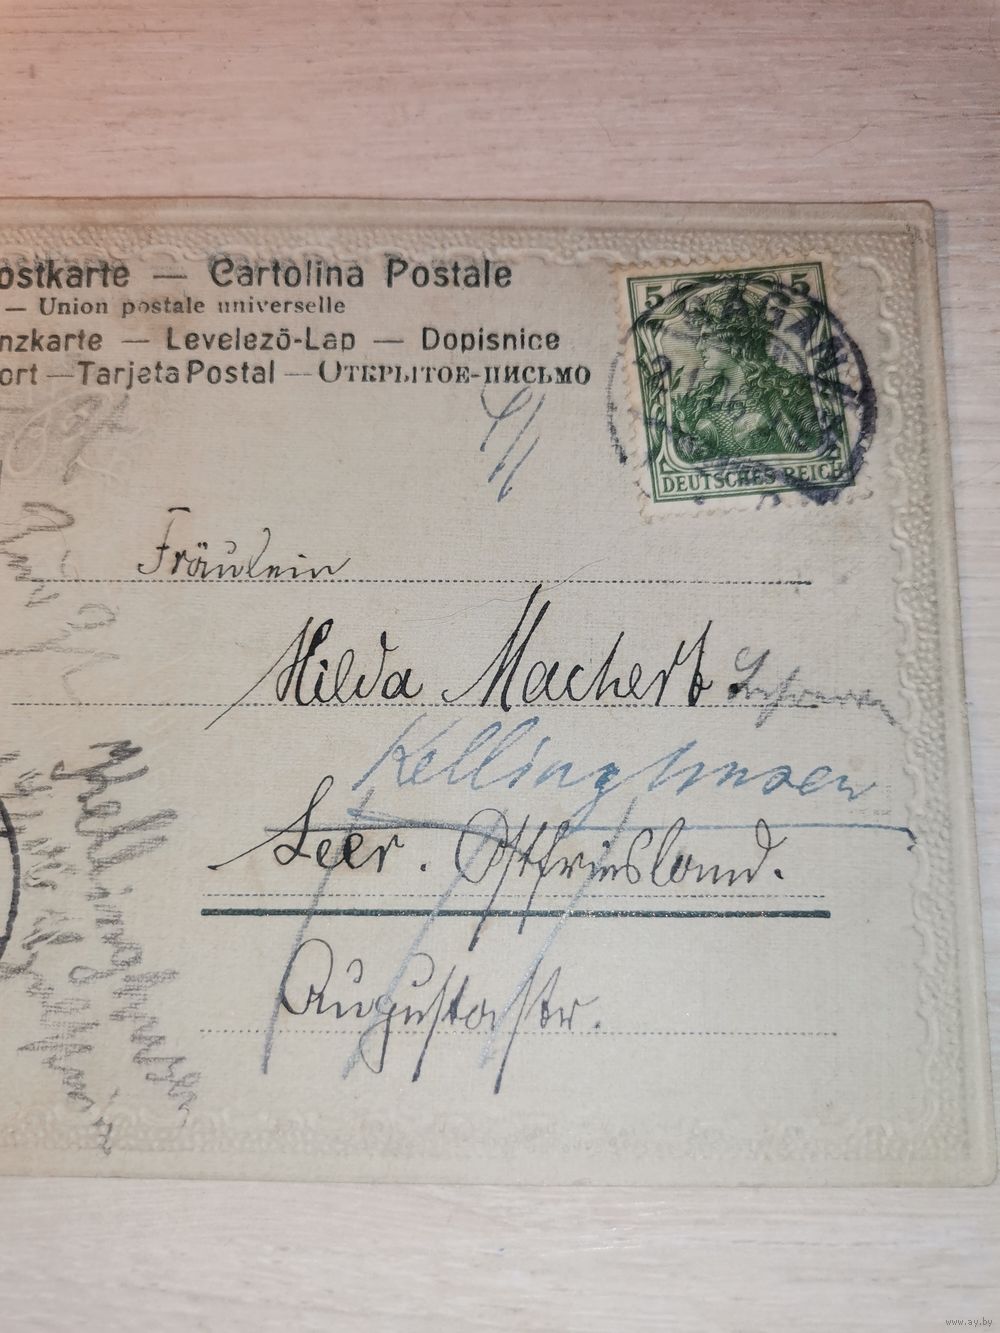 ostkarte — Cartolina Postale
— Union postale universelle
nzkarte — Levelező-Lap — Dopisnice
ort — Tarjeta Postal — Открытое-письмо
5 5
DEUTSCHES REICH
SAGAN
Fräulein
Hilda Machert
Kellinghusen
Leer. Ostfriesland.
Augustastr.
Kellinghusen
www.ay.by